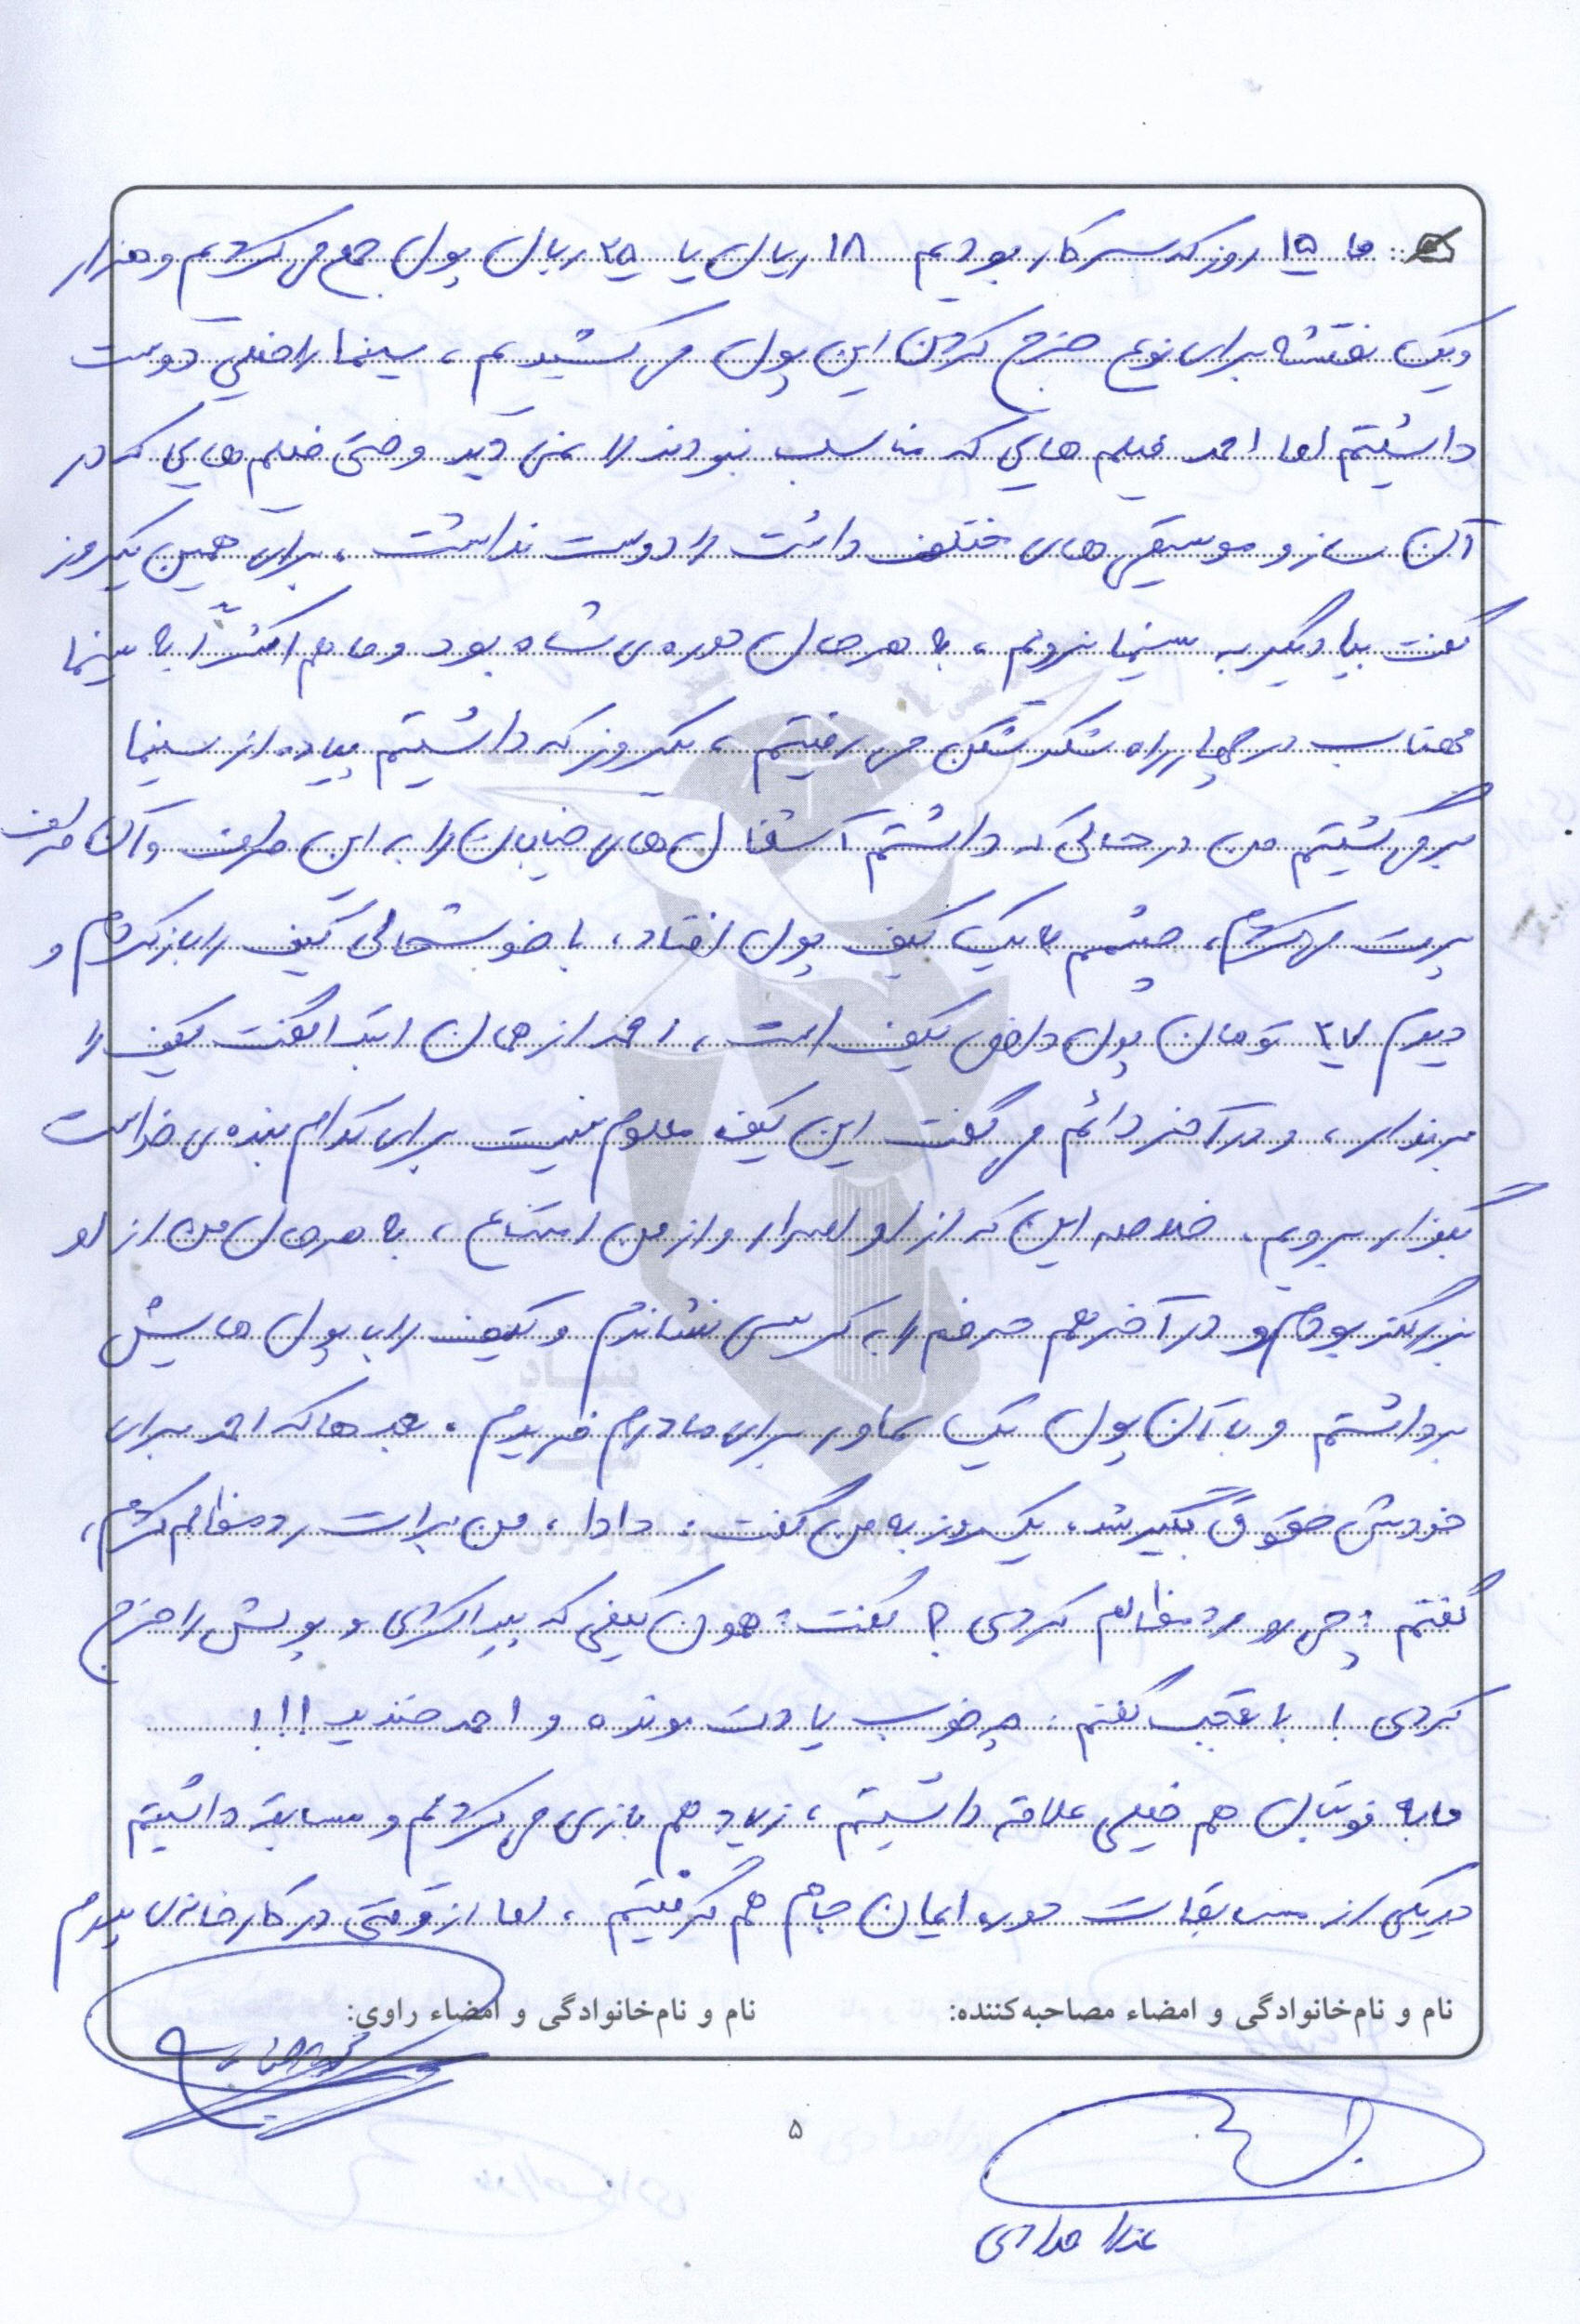 ما ۱۵ روز که سر کار بودیم ۱۸ ریال یا ۲۵ ریال پول جمع می کردیم و هزار
و یک نقشه برای نوع خرج کردن این پول می کشیدیم ، سینما را خیلی دوست
داشتیم اما احمد فیلم هایی که مناسب نبودند را نمی دید و حتی فیلم هایی که در
آن ساز و موسیقی های مختلف داشت را دوست نداشت ، برای همین یکروز
گفت بیا دیگر به سینما نرویم ، به هر حال دوره ی شاه بود و ما هم اکثراً به سینما
مهتاب در چهارراه شکرشکن می رفتیم ، یکروز که داشتیم پیاده از سینما
برمی گشتیم من در حالی که داشتم آشغال های خیابان را به این طرف و آن طرف
پرت می کردم ، چشمم به یک کیف پول افتاد ، با خوشحالی کیف را باز کردم و
دیدم ۳۷ تومان پول داخل کیف است ، احمد از همان ابتدا گفت کیف را
برندار ، و در آخر دائم می گفت این کیف معلوم نیست برای کدام بنده ی خداست
بگذار برویم . خلاصه این که از او اصرار و از من امتناع ، به هر حال من از او
بزرگتر بودم و در آخر هم حرفم را به کرسی نشاندم و کیف را با پول هایش
برداشتم و با آن پول یک سماور برای مادرم خریدم . بعدها که احمد برای
خودش حقوق بگیر شد ، یکروز به من گفت : دادا ، من برات رد مظالم کردم ،
گفتم : چی رو رد مظالم کردی ؟ گفت : همون کیفی که پیدا کردی و پولش را خرج
کردی ! با تعجب گفتم : چه خوب یادت مونده و احمد خندید !!!
ما به فوتبال هم خیلی علاقه داشتیم ، زیاد هم بازی می کردیم و مسابقه داشتیم
در یکی از مسابقات دوره ایمان جام هم گرفتیم ، اما از وقتی در کارخانه ی پدرم
نام و نام‌خانوادگی و امضاء مصاحبه‌کننده:
نام و نام‌خانوادگی و امضاء راوی:
۵